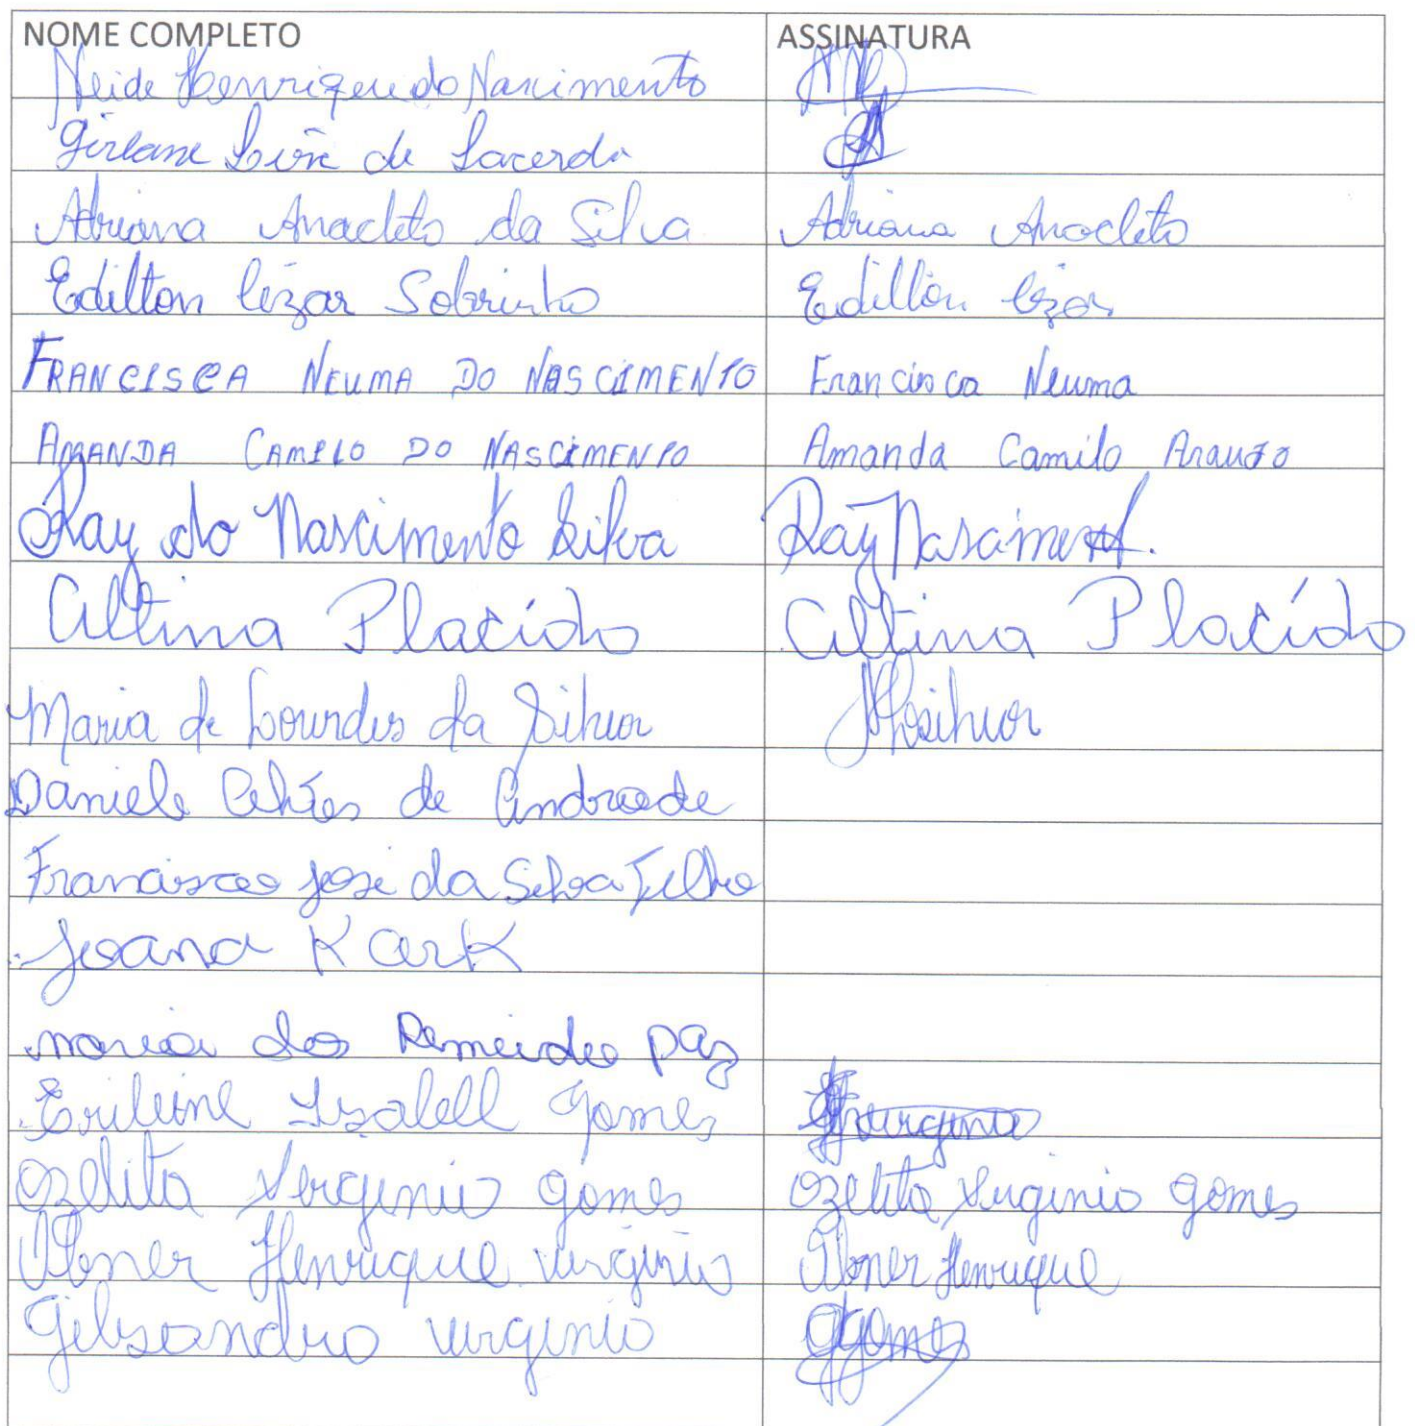 NOME COMPLETO ASSINATURA
Neide Henrique do Nascimento
Girlane de Lacerda
Adriana Anacleto da Silva Adriana Anacleto
Edilton Cézar Sobrinho Edilton Cézar
FRANCISCA NEUMA DO NASCIMENTO Francisca Neuma
AMANDA CAMILO DO NASCIMENTO Amanda Camilo Araujo
Ray do Nascimento Silva Ray Nascimento.
Altina Placído Altina Placído
Maria de Lourdes da Silva
Daniele de Andrade
Francisco José da Silva Filho
Joana Kark
maria dos Remeideo paz
Izabell Gomes
Ozelita Verginio gomes Ozelita Virginio gomes
Abner Henrique virginio Abner Henrique
Gilsandro virginio Ggomes